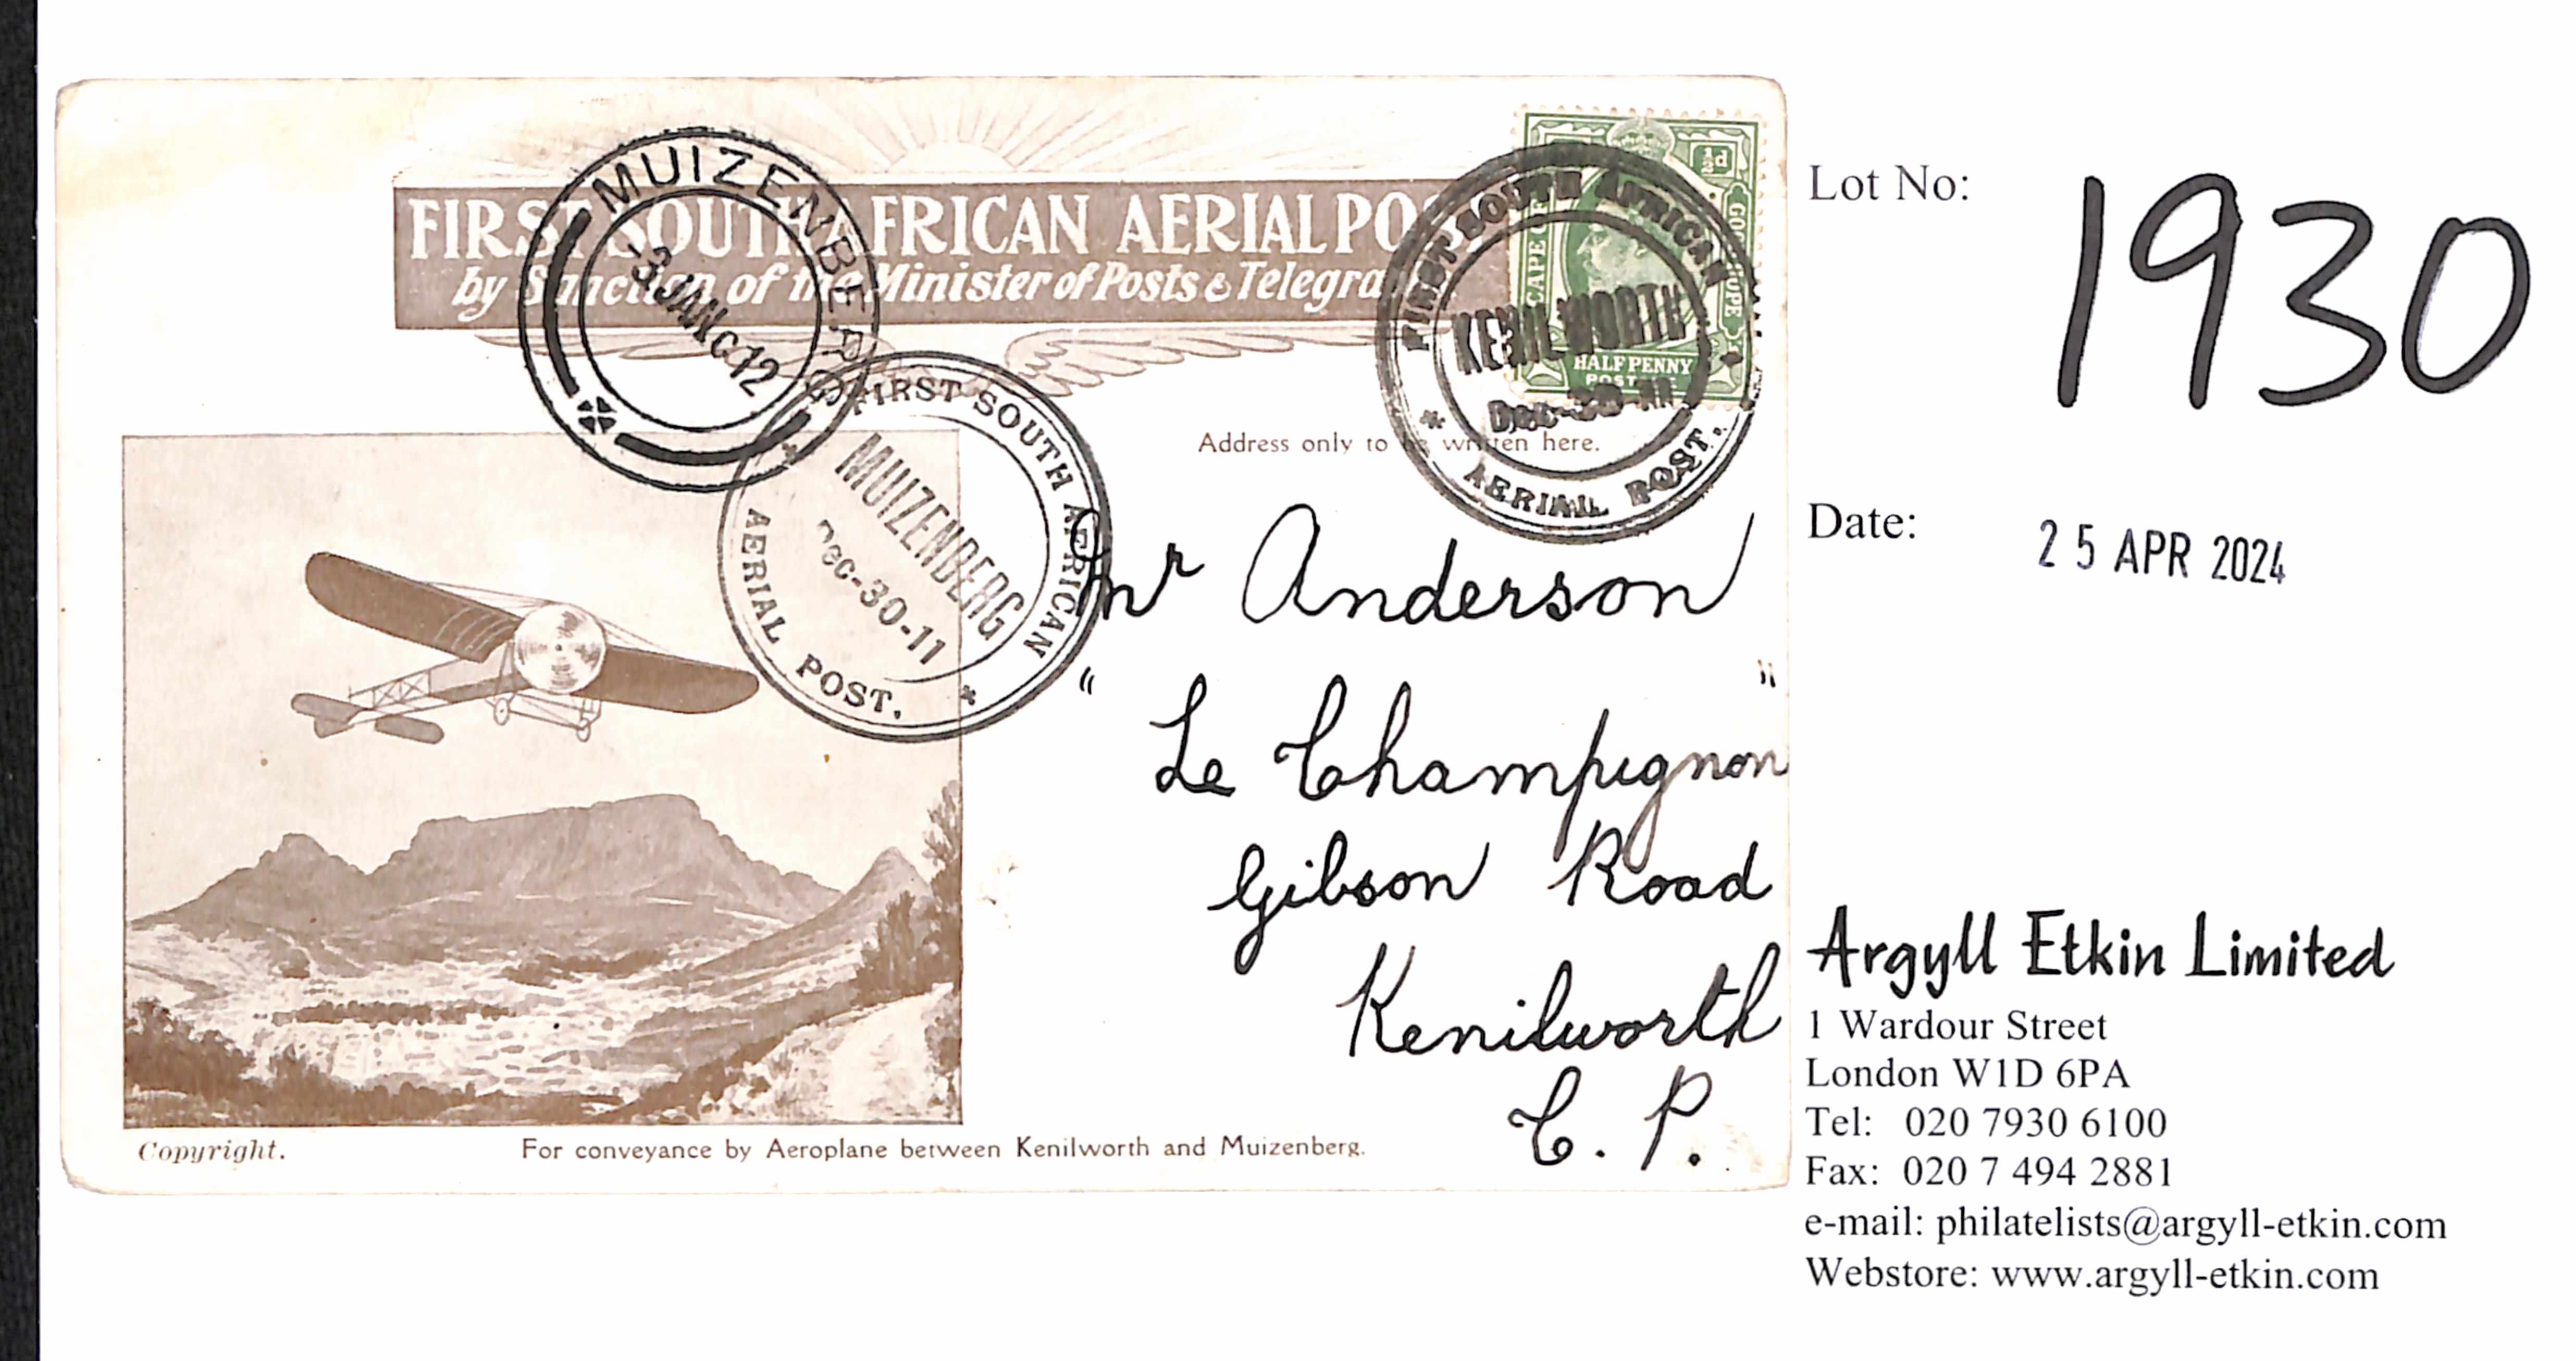 FIRST SOUTH AFRICAN AERIAL PO
by Sanction of the Minister of Posts & Telegra
MUIZENBERG
-3 JAN 12
FIRST SOUTH AFRICAN
MUIZENBERG
Dec-30-11
AERIAL POST.
½d
CAPE OF
GOO
HALFPENNY
FIRST SOUTH AFRICAN
KENILWORTH
Dec-30-11
AERIAL POST.
Address only to be written here.
Mr Anderson
"Le Champignon"
Gibson Road
Kenilworth
C. P.
Copyright.
For conveyance by Aeroplane between Kenilworth and Muizenberg.
Lot No: 1930
Date: 25 APR 2024
Argyll Etkin Limited
1 Wardour Street
London W1D 6PA
Tel: 020 7930 6100
Fax: 020 7 494 2881
e-mail: philatelists@argyll-etkin.com
Webstore: www.argyll-etkin.com